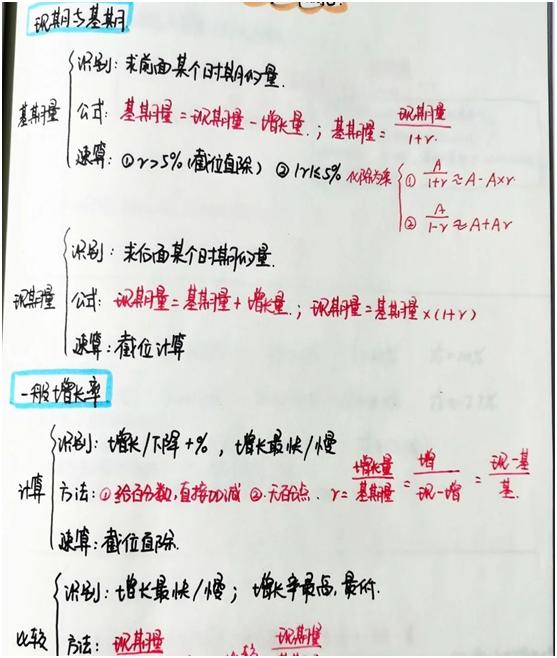 现期与基期
基期量
识别：求前面某个时期的量.
公式：基期量＝现期量－增长量.；基期量＝现期量/1+r.
速算：①r>5%（截位直除） ②|r|≤5% 化除为乘 ① A/1+r≈A-A×r
② A/1-r≈A+Ar
现期量
识别：求后面某个时期的量.
公式：现期量＝基期量＋增长量.；现期量＝基期量×(1+r)
速算：截位计算
一般增长率.
计算
识别：增长/下降+%，增长最快/慢
方法：①给百分数,直接加减 ②无百分点. r＝增长量/基期量＝增/现-增＝现-基/基.
速算：截位直除.
比较
识别：增长最快/慢；增长率最高,最低.
方法：现期量 现期量